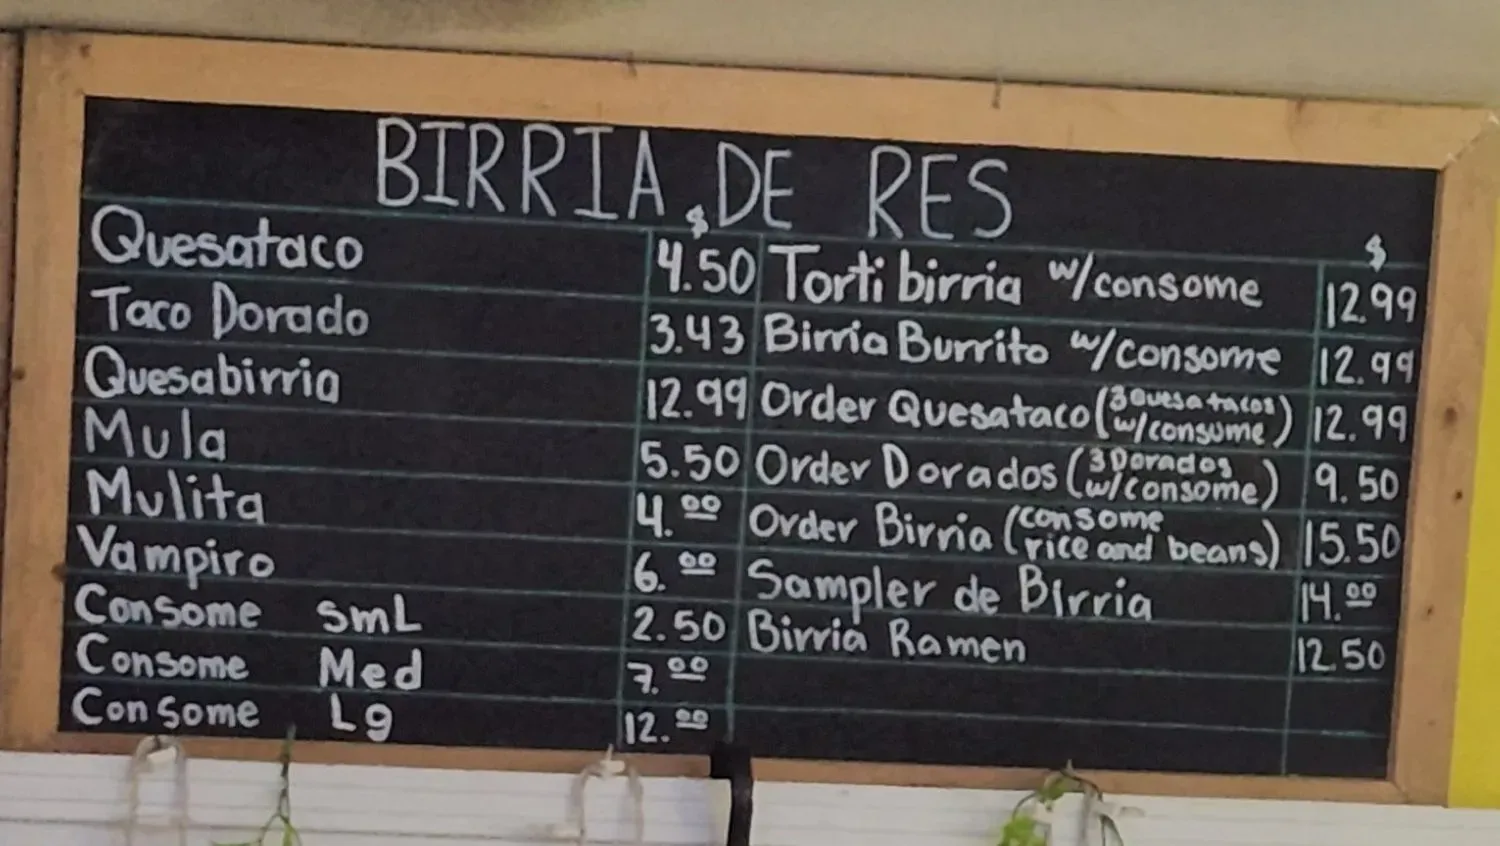 BIRRIA DE RES
$
Quesataco 4.50
Taco Dorado 3.43
Quesabirria 12.99
Mula 5.50
Mulita 4.00
Vampiro 6.00
Consome SmL 2.50
Consome Med 7.00
Consome Lg 12.00
$
Torti birria w/consome 12.99
Birria Burrito w/consome 12.99
Order Quesataco (3 Quesatacos w/consume) 12.99
Order Dorados (3 Dorados w/consome) 9.50
Order Birria (consome rice and beans) 15.50
Sampler de Birria 14.00
Birria Ramen 12.50